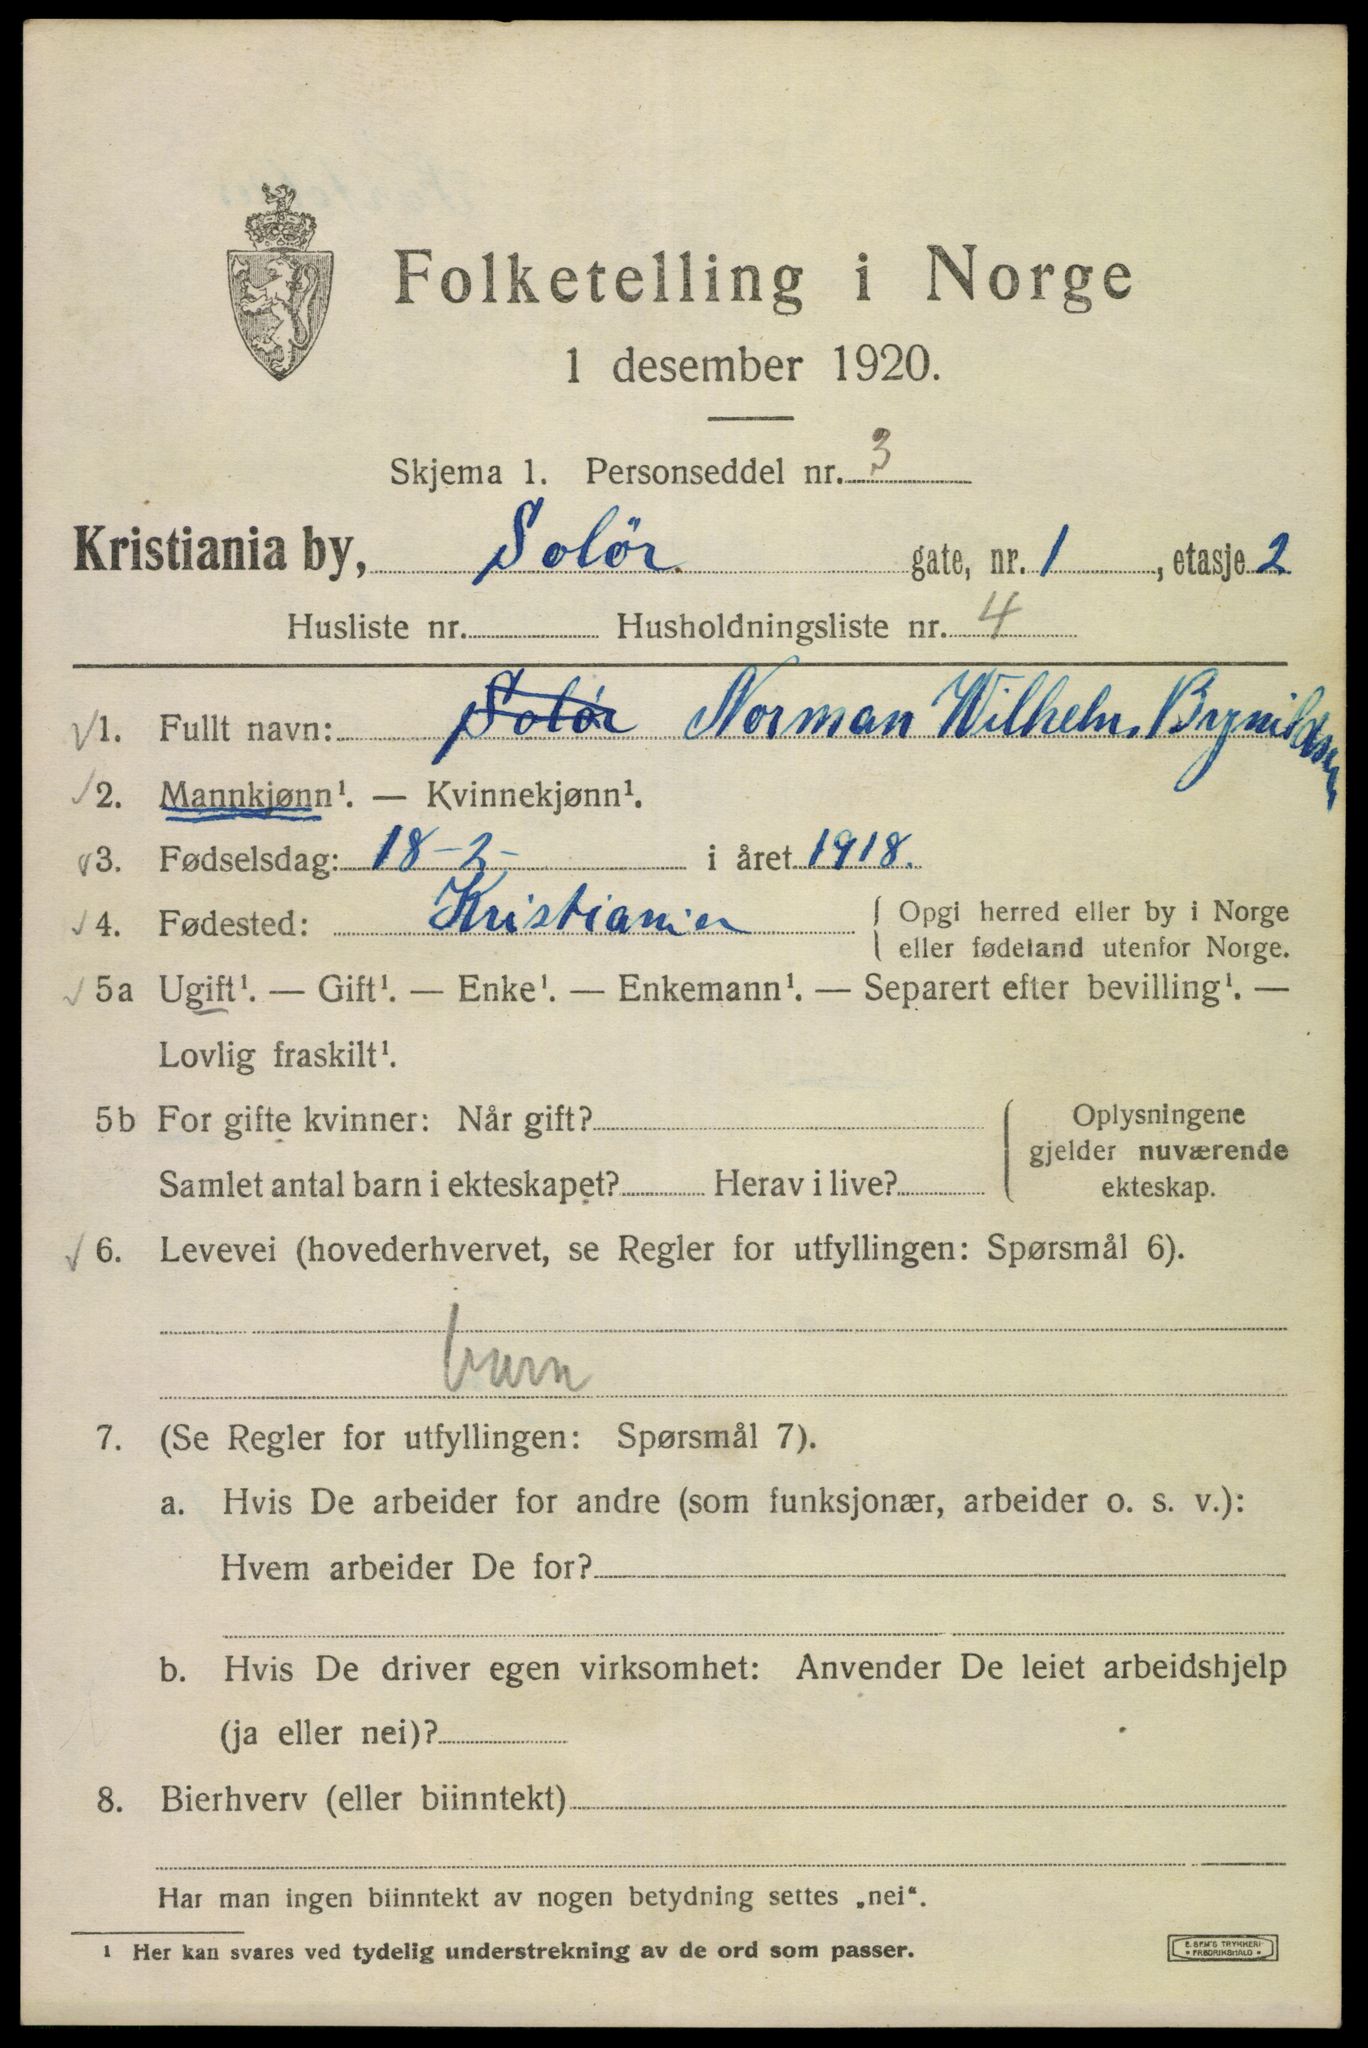 Folketelling i Norge
1 desember 1920.
Skjema 1. Personseddel nr. 3
Kristiania by, Solör gate, nr. 1, etasje 2
Husliste nr. Husholdningsliste nr. 4
1. Fullt navn: Solör Norman Wilhelm Brynildsen
2. Mannkjønn¹. — Kvinnekjønn¹.
3. Fødselsdag: 18-2- i året 1918.
4. Fødested: Kristiania { Opgi herred eller by i Norge
eller fødeland utenfor Norge.
5a Ugift¹. — Gift¹. — Enke¹. — Enkemann¹. — Separert efter bevilling¹. —
Lovlig fraskilt¹.
5b For gifte kvinner: Når gift? { Oplysningene
gjelder nuværende
Samlet antal barn i ekteskapet? Herav i live? ekteskap.
6. Levevei (hovederhvervet, se Regler for utfyllingen: Spørsmål 6).
barn
7. (Se Regler for utfyllingen: Spørsmål 7).
a. Hvis De arbeider for andre (som funksjonær, arbeider o. s. v.):
Hvem arbeider De for?
b. Hvis De driver egen virksomhet: Anvender De leiet arbeidshjelp
(ja eller nei)?
8. Bierhverv (eller biinntekt)
Har man ingen biinntekt av nogen betydning settes „nei“.
1 Her kan svares ved tydelig understrekning av de ord som passer.
E. SEM'S TRYKKERI
FREDRIKSHALD